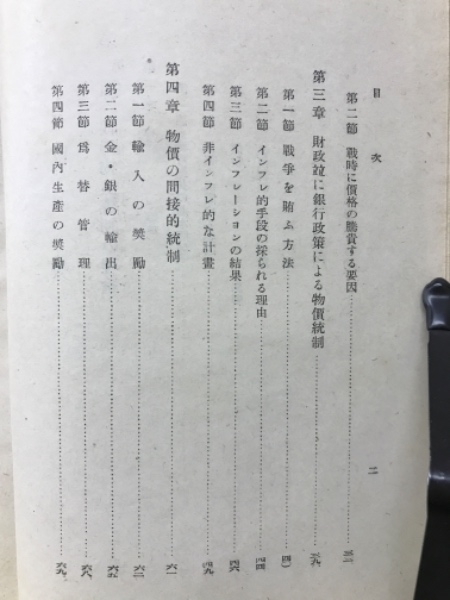 目次
第二節 戰時に價格の騰貴する要因
第三章 財政竝に銀行政策による物價統制
第一節 戰爭を賄ふ方法
第二節 インフレ的手段の採られる理由
第三節 インフレーションの結果
第四節 非インフレ的な計畫
第四章 物價の間接的統制
第一節 輸入の奬勵
第二節 金・銀の輸出
第三節 爲替管理
第四節 國內生產の奬勵
二
三九
四一
四四
四六
四九
六一
六二
六五
六八
六九